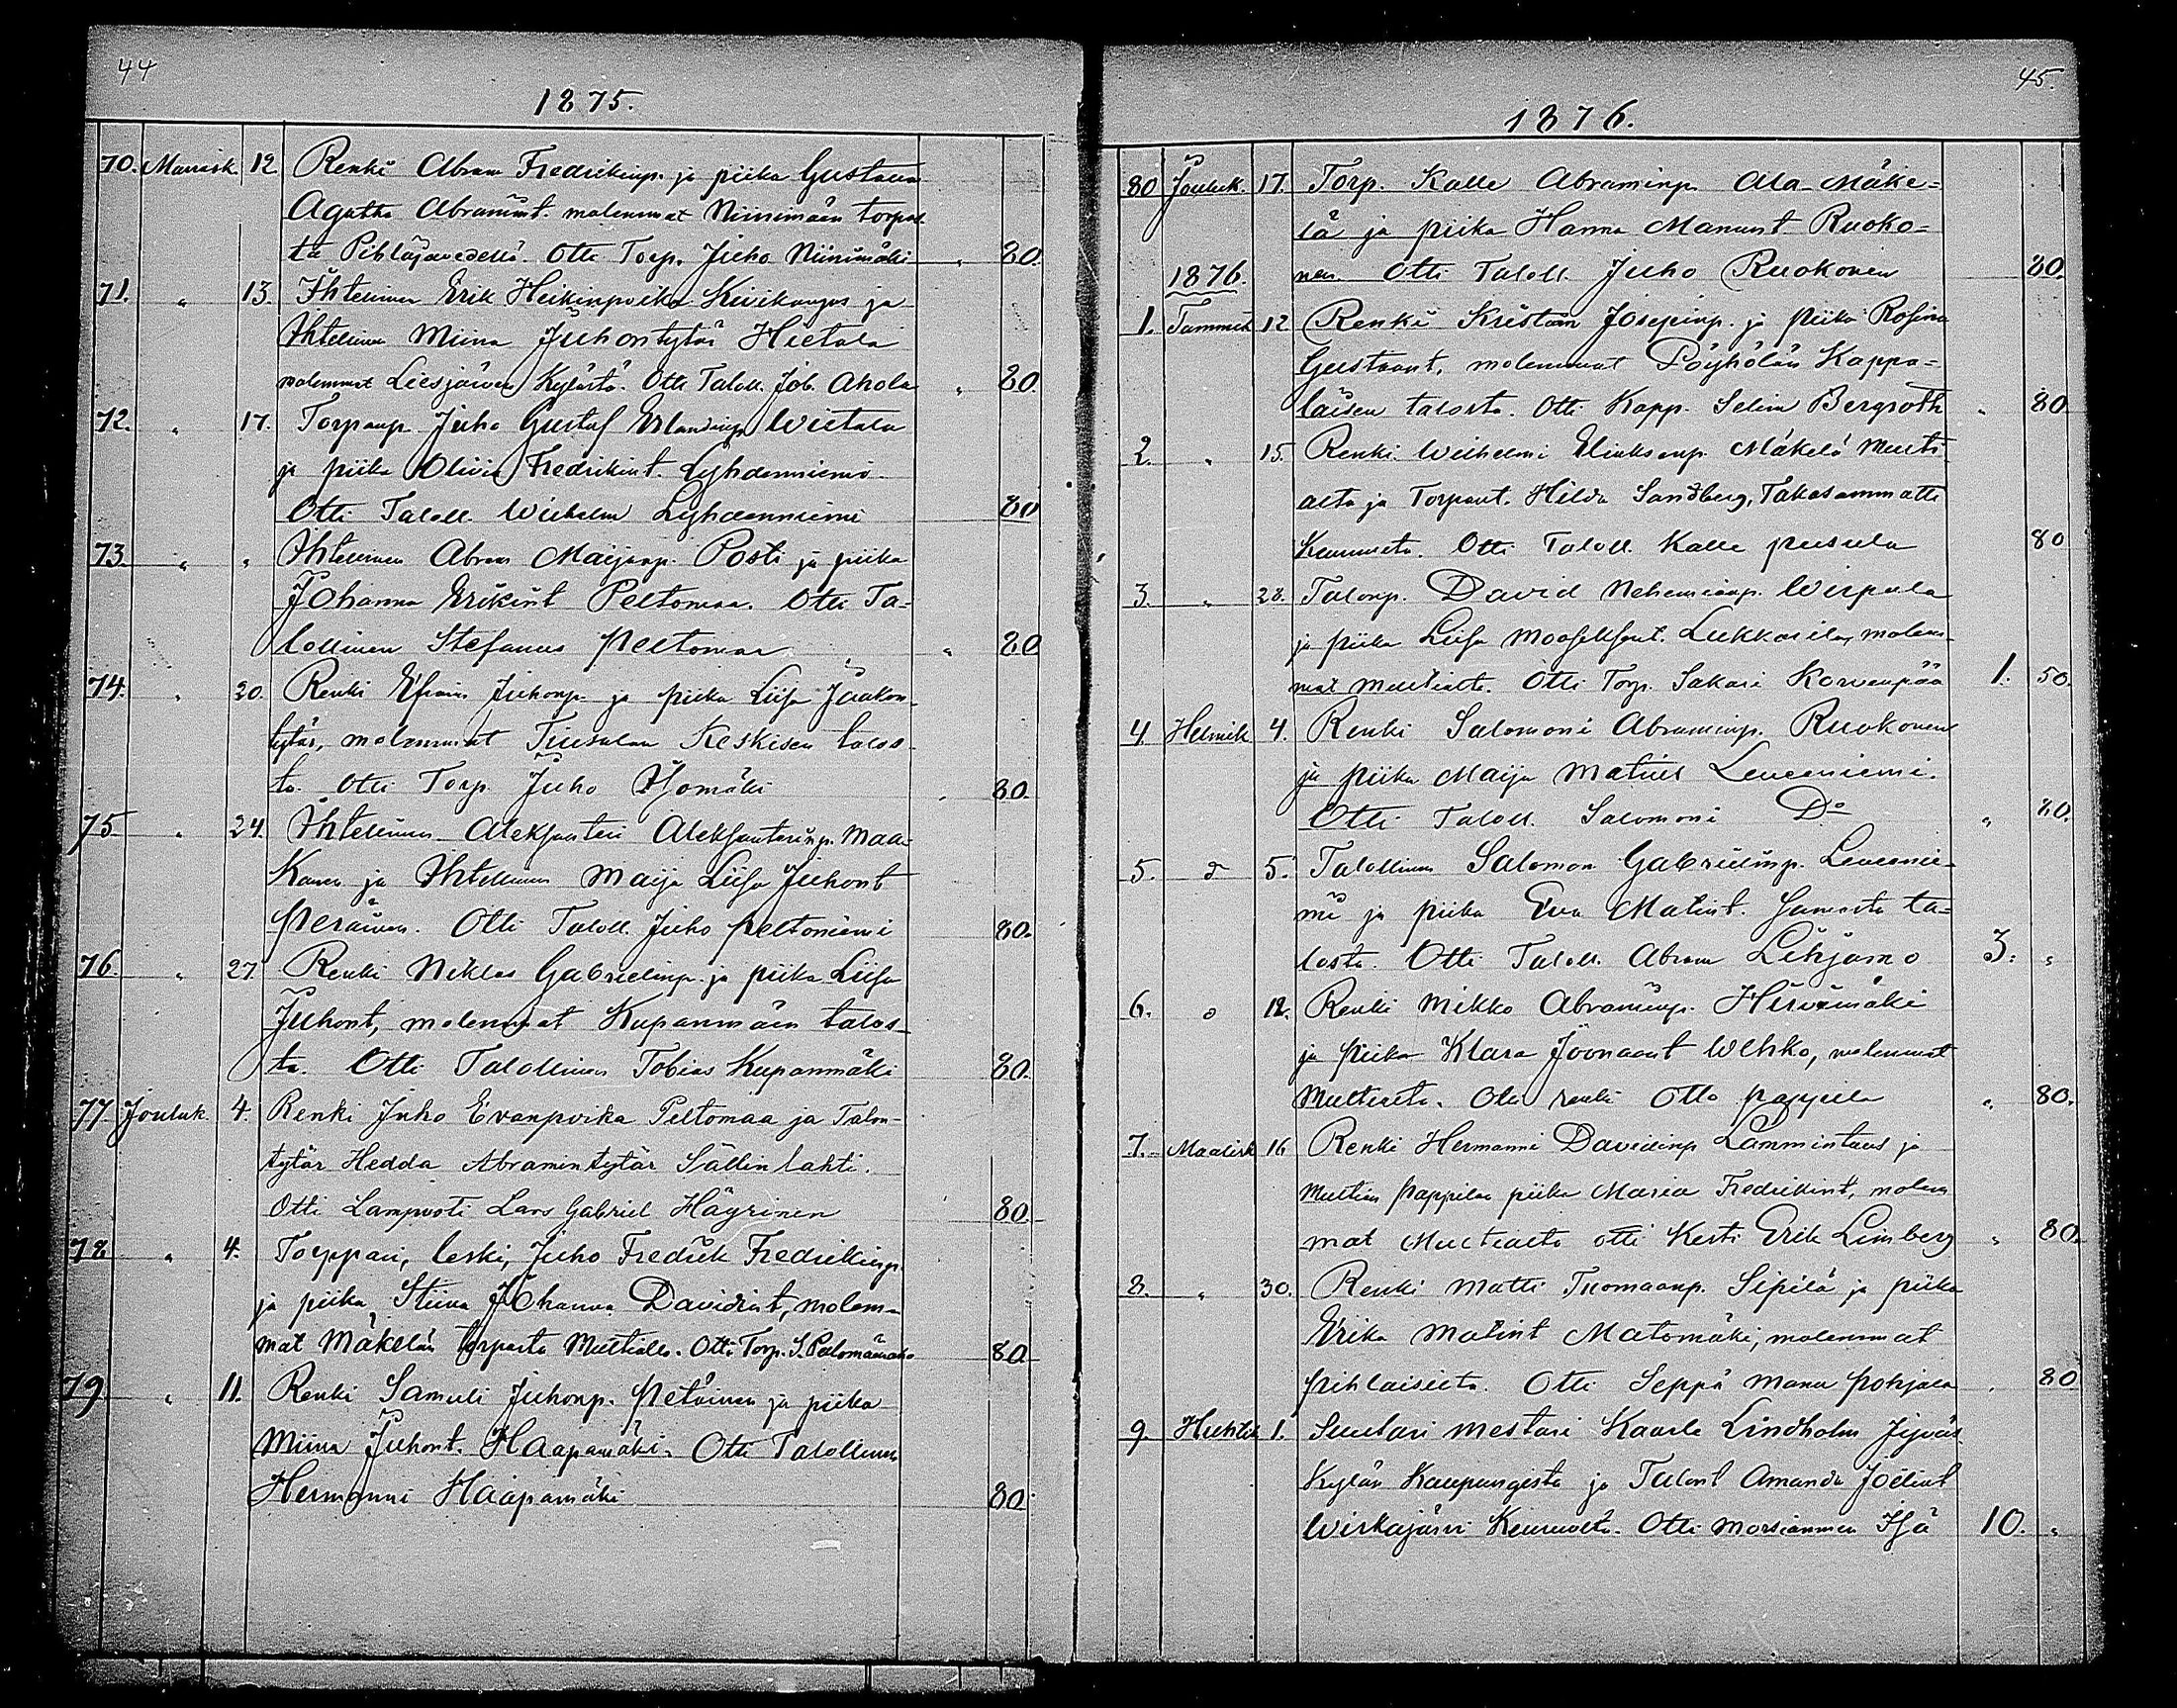 44
1875.
70. Marrask. 12. Renki Abram Fredrikinp. ja piika Gustava
Agatha Abramint. molemmat Niinimäen torpas-
ta Pihlajavedellä. Otti Torp. Juho Niinimäki „ 80.
71. „ 13. Ihtellinen Erik Heikinpoika Kivikangas ja
Ihtellinen Miina Juhontytär Hietala
molemmat Liesjärven Kylästä. Otti Taloll. Job. Ahola „ 80.
72. „ 17. Torpanp. Juho Gustaf Erlandinp. Wietala
ja piika Olivia Fredrikint. Lyhdenniemi
Otti Taloll. Wilhelm Lyhdenniemi 80
73. „ „ Ihtellinen Abram Maijanp. Posti ja piika
Johanna Erikint Peltomaa. Otti Ta-
lollinen Stefanus Peltomaa „ 80
74. „ 20. Renki Efraim Juhonp. ja piika Liisa Jaakon-
tytär, molemmat Tiusalan Keskisen talos-
ta. Otti Torp. Juho Yomäki „ 80.
75 „ 24. Ihtellinen Aleksanteri Aleksanterinp. Maa-
 ja Ihtellinen Maija Liisa Juhont
Peräinen. Otti Taloll. Juho Peltoniemi 80.
76. „ 27. Renki Niklas Gabrielinp. ja piika Liisa
Juhont, molemmat Kupanmäen talos-
ta. Otti Talollinen Tobias Kupanmäki 80.
77. Jouluk. 4. Renki Juho Evanpoika Peltomaa ja Talon-
tytär Hedda Abramintytär Sällinlahti.
Otti Lampuoti Lars Gabriel Häyrinen 80.
78 „ 4. Torppari, leski, Juho Fredrik Fredrikinp.
ja piika Stiina Johanna Davidint, molem-
mat Mäkelän torpasta Multialla. Otti Torp. S. Palomäki 80
79 „ 11. Renki Samuli Juhonp. Petäinen ja piika
Miina Juhont. Haapamäki. Otti Talollinen
Hermanni Haapamäki 80.
45.
1876.
80 Jouluk. 17. Torp. Kalle Abraminp. Ala-Mäke=
lä ja piika Hanna Manunt Ruoko=
1876. nen. Otti Taloll. Juho Ruokonen 80.
1. Tammik 12 Renki Kristian Josepinp. ja piika Rosina
Gustaant, molemmat Pöyhölän Kappa=
laisen talosta. Otti Kapp. Selim Bergroth „ 80
2. „ 15. Renki Wilhelmi Eliaksenp. Mäkelä Multi-
alta ja Torpant. Hilda Sandberg, Takasammatti
Keuruulta. Otti Taloll. Kalle Pusula 80
3. „ 28. Talonp. David Nehemianp. Wirpula
ja piika Liisa Mooseksent. Lukkarila, molem-
mat Multialta. Otti Torp. Sakari Korvenpää 1. 50.
4. Helmik 4. Renki Salomoni Abraminp. Ruokonen
ja piika Maija Matint Leuceniemi.
Otti Taloll. Salomoni D:o „ 80.
5. d 5. Talollinen Salomon Gabrielinp. Leucenie-
mi ja piika Eva Matint. Samasta ta=
losta. Otti Taloll. Abram Lehjamo 3. „
6. d 12. Renki Mikko Abraminp. Hirvimäki
ja piika Klara Joonaant Wehko, molemmat
Multialta. Otti renki Otto Pappila „ 80.
7. Maalisk 16 Renki Hermanni Davidinp Lammintaus ja
Multian Pappilan piika Maria Fredrikint, molem
mat Multialta otti Kesti Erik Limberg „ 80.
8. „ 30. Renki Matti Tuomaanp. Sipilä ja piika
Erika Matint Matomäki, molemmat
Pihlaisista. Otti Seppä Manu Pohjala . 80
9. Huhtik 1. Suutari mestari Kaarle Lindholm Jyväs
Kylän Kaupungista ja Talont Amanda Joelint
Wirkajärvi Keuruulta. Otti Morsiammen Isä 10. „